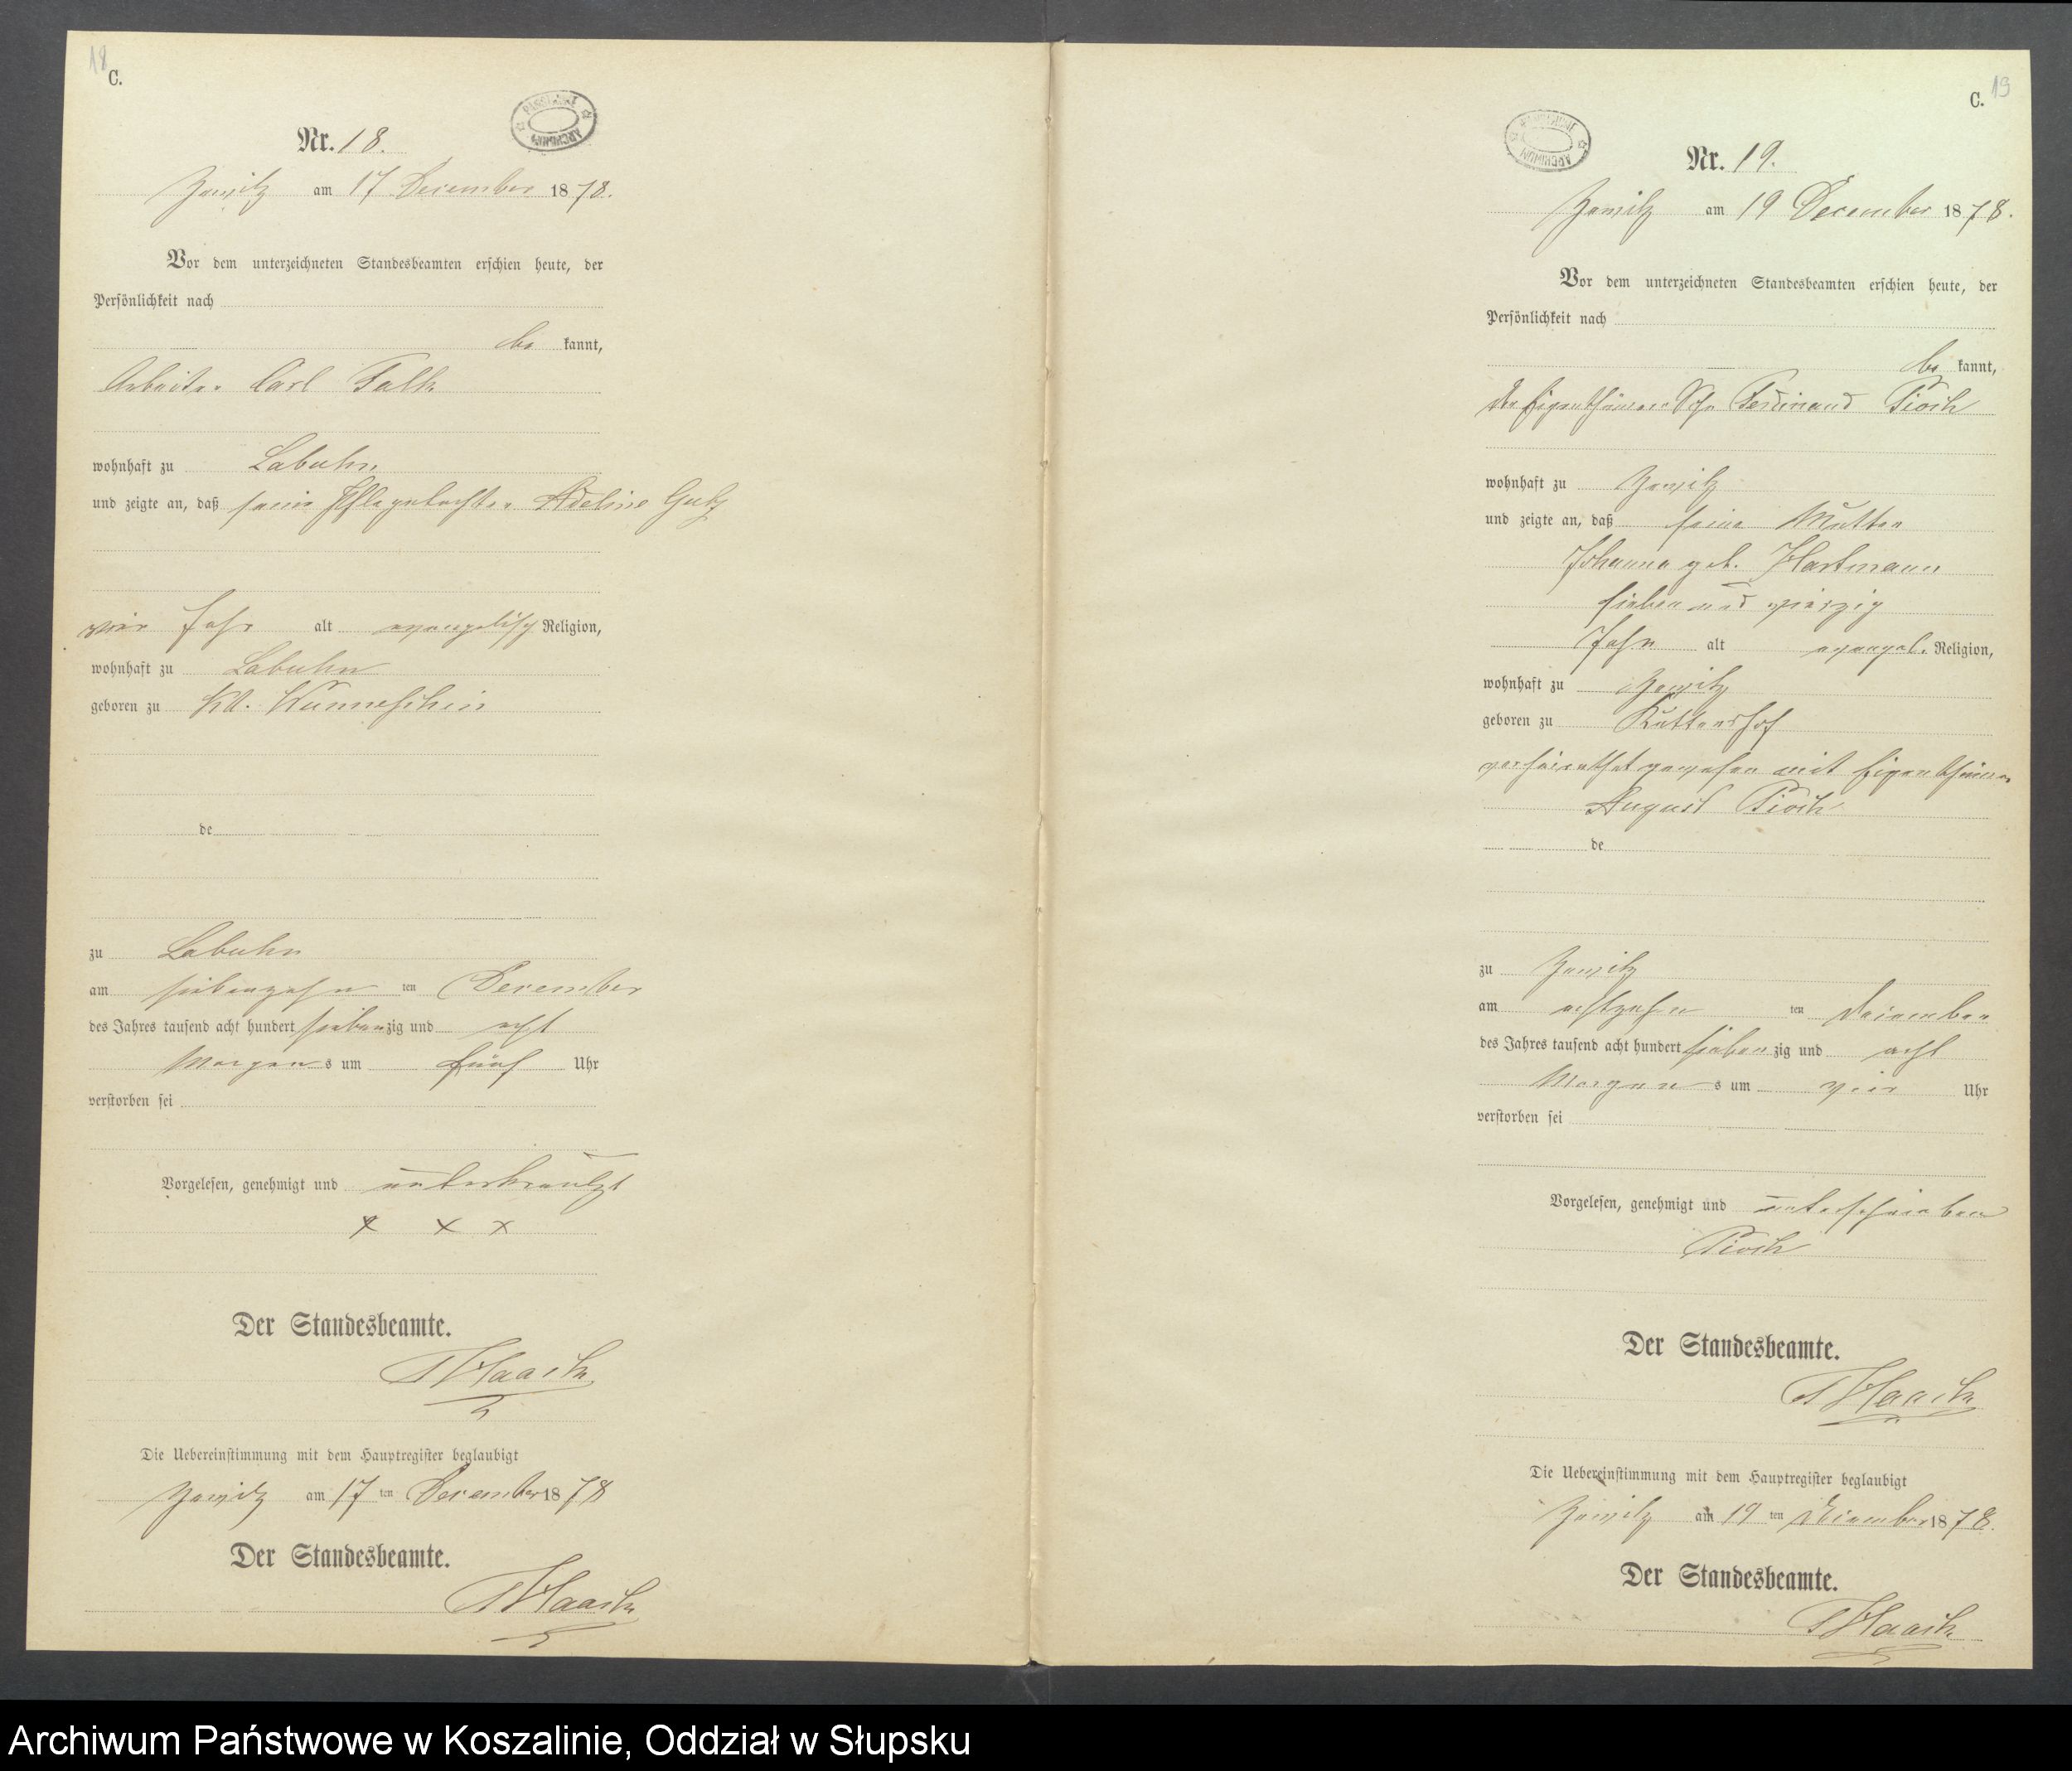 18
C.
Nr. 18.
Zewitz am 17 December 1878.
Vor dem unterzeichneten Standesbeamten erschien heute, der
Persönlichkeit nach
be kannt,
Arbeiter Carl Falk
wohnhaft zu Labuhn
und zeigte an, daß seine Pflegetochter Adeline
vier Jahr alt evangelisch Religion,
wohnhaft zu Labuhn
geboren zu Kl.
de
zu Labuhn
am siebenzehn ten December
des Jahres tausend acht hundert siebenzig und acht
Morgens um fünf Uhr
verstorben sei
Vorgelesen, genehmigt und unterkreutzt
x x x
Der Standesbeamte.
Die Uebereinstimmung mit dem Hauptregister beglaubigt
Zewitz am 17 ten December 1878
Der Standesbeamte.
19
C.
ARCHIWUM
Nr. 19.
Zewitz am 19 December 1878.
Vor dem unterzeichneten Standesbeamten erschien heute, der
Persönlichkeit nach
be kannt,
der Eigenthümer Ferdinand Pioch
wohnhaft zu Zewitz
und zeigte an, daß seine Mutter
Johanna geb. Hartmann
sieben und vierzig
Jahr alt evangel. Religion,
wohnhaft zu Zewitz
geboren zu
verheirathet gewesen mit Eigenthümer
August Pioch
de
zu Zewitz
am achtzehn ten December
des Jahres tausend acht hundert siebenzig und acht
Morgens um vier Uhr
verstorben sei
Vorgelesen, genehmigt und unterschrieben
Pioch
Der Standesbeamte.
Die Uebereinstimmung mit dem Hauptregister beglaubigt
Zewitz am 19 ten December 1878.
Der Standesbeamte.
Archiwum Państwowe w Koszalinie, Oddział w Słupsku